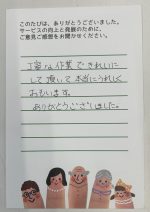 このたびは、ありがとうございました。
サービスの向上と発展のために、
ご意見ご感想をお聞かせください。
丁寧な作業できれいに
して頂いて本当にうれしく
おもいます。
ありがとうございました。